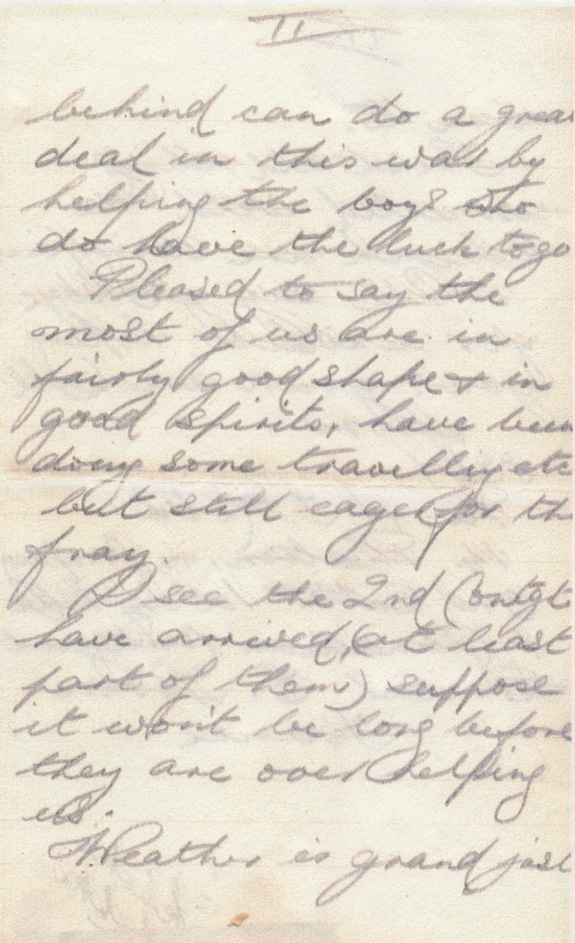 II
behind can do a great
deal in this was by
helping the boys who
do have the luck to go
Pleased to say the
most of us are in
fairly good shape + in
good spirits, have been
doing some travelling etc
but still eager for the
fray.
I see the 2nd Contgt
have arrived, (at least
part of them) suppose
it won't be long before
they are over helping
us.
Weather is grand just